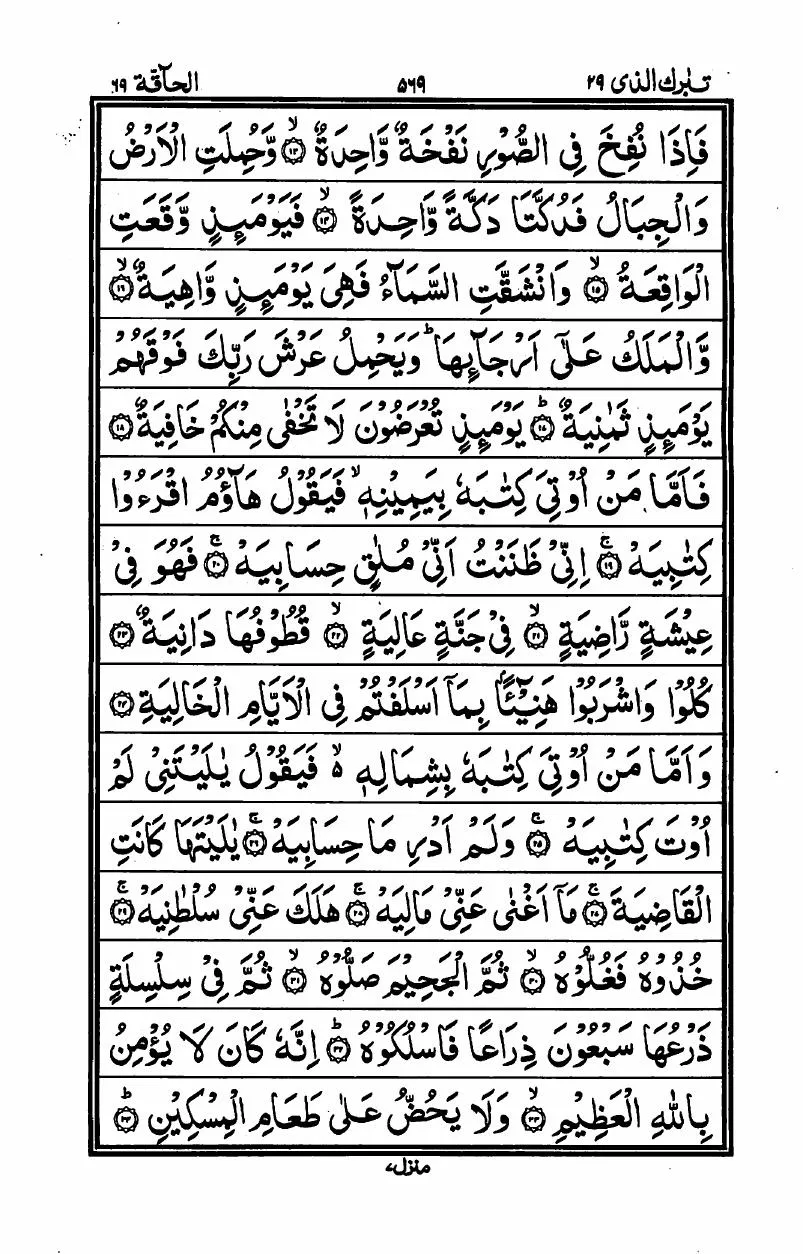 تبٰرك الذی ۲۹ ۵۶۹ الحآقة ۶۹
فَاِذَا نُفِخَ فِی الصُّوْرِ نَفْخَةٌ وَّاحِدَةٌ ۙ۝۱۳ وَّحُمِلَتِ الْاَرْضُ
وَالْجِبَالُ فَدُكَّتَا دَكَّةً وَّاحِدَةً ۙ۝۱۴ فَیَوْمَىِٕذٍ وَّقَعَتِ
الْوَاقِعَةُ ۙ۝۱۵ وَانْشَقَّتِ السَّمَآءُ فَهِیَ یَوْمَىِٕذٍ وَّاهِیَةٌ ۙ۝۱۶
وَّالْمَلَكُ عَلٰۤی اَرْجَآىِٕهَا ؕ وَیَحْمِلُ عَرْشَ رَبِّكَ فَوْقَهُمْ
یَوْمَىِٕذٍ ثَمٰنِیَةٌ ؕ۝۱۷ یَوْمَىِٕذٍ تُعْرَضُوْنَ لَا تَخْفٰی مِنْكُمْ خَافِیَةٌ ۝۱۸
فَاَمَّا مَنْ اُوْتِیَ كِتٰبَهٗ بِیَمِیْنِهٖ ۙ فَیَقُوْلُ هَآؤُمُ اقْرَءُوْا
كِتٰبِیَهْ ۚ۝۱۹ اِنِّیْ ظَنَنْتُ اَنِّیْ مُلٰقٍ حِسَابِیَهْ ۚ۝۲۰ فَهُوَ فِیْ
عِیْشَةٍ رَّاضِیَةٍ ۙ۝۲۱ فِیْ جَنَّةٍ عَالِیَةٍ ۙ۝۲۲ قُطُوْفُهَا دَانِیَةٌ ۝۲۳
كُلُوْا وَاشْرَبُوْا هَنِیْٓــًٔۢا بِمَاۤ اَسْلَفْتُمْ فِی الْاَیَّامِ الْخَالِیَةِ ۝۲۴
وَاَمَّا مَنْ اُوْتِیَ كِتٰبَهٗ بِشِمَالِهٖ ۙ۬ فَیَقُوْلُ یٰلَیْتَنِیْ لَمْ
اُوْتَ كِتٰبِیَهْ ۚ۝۲۵ وَلَمْ اَدْرِ مَا حِسَابِیَهْ ۚ۝۲۶ یٰلَیْتَهَا كَانَتِ
الْقَاضِیَةَ ۚ۝۲۷ مَاۤ اَغْنٰی عَنِّیْ مَالِیَهْ ۚ۝۲۸ هَلَكَ عَنِّیْ سُلْطٰنِیَهْ ۚ۝۲۹
خُذُوْهُ فَغُلُّوْهُ ۙ۝۳۰ ثُمَّ الْجَحِیْمَ صَلُّوْهُ ۙ۝۳۱ ثُمَّ فِیْ سِلْسِلَةٍ
ذَرْعُهَا سَبْعُوْنَ ذِرَاعًا فَاسْلُكُوْهُ ؕ۝۳۲ اِنَّهٗ كَانَ لَا یُؤْمِنُ
بِاللّٰهِ الْعَظِیْمِ ۙ۝۳۳ وَلَا یَحُضُّ عَلٰی طَعَامِ الْمِسْكِیْنِ ؕ۝۳۴
منزل۷